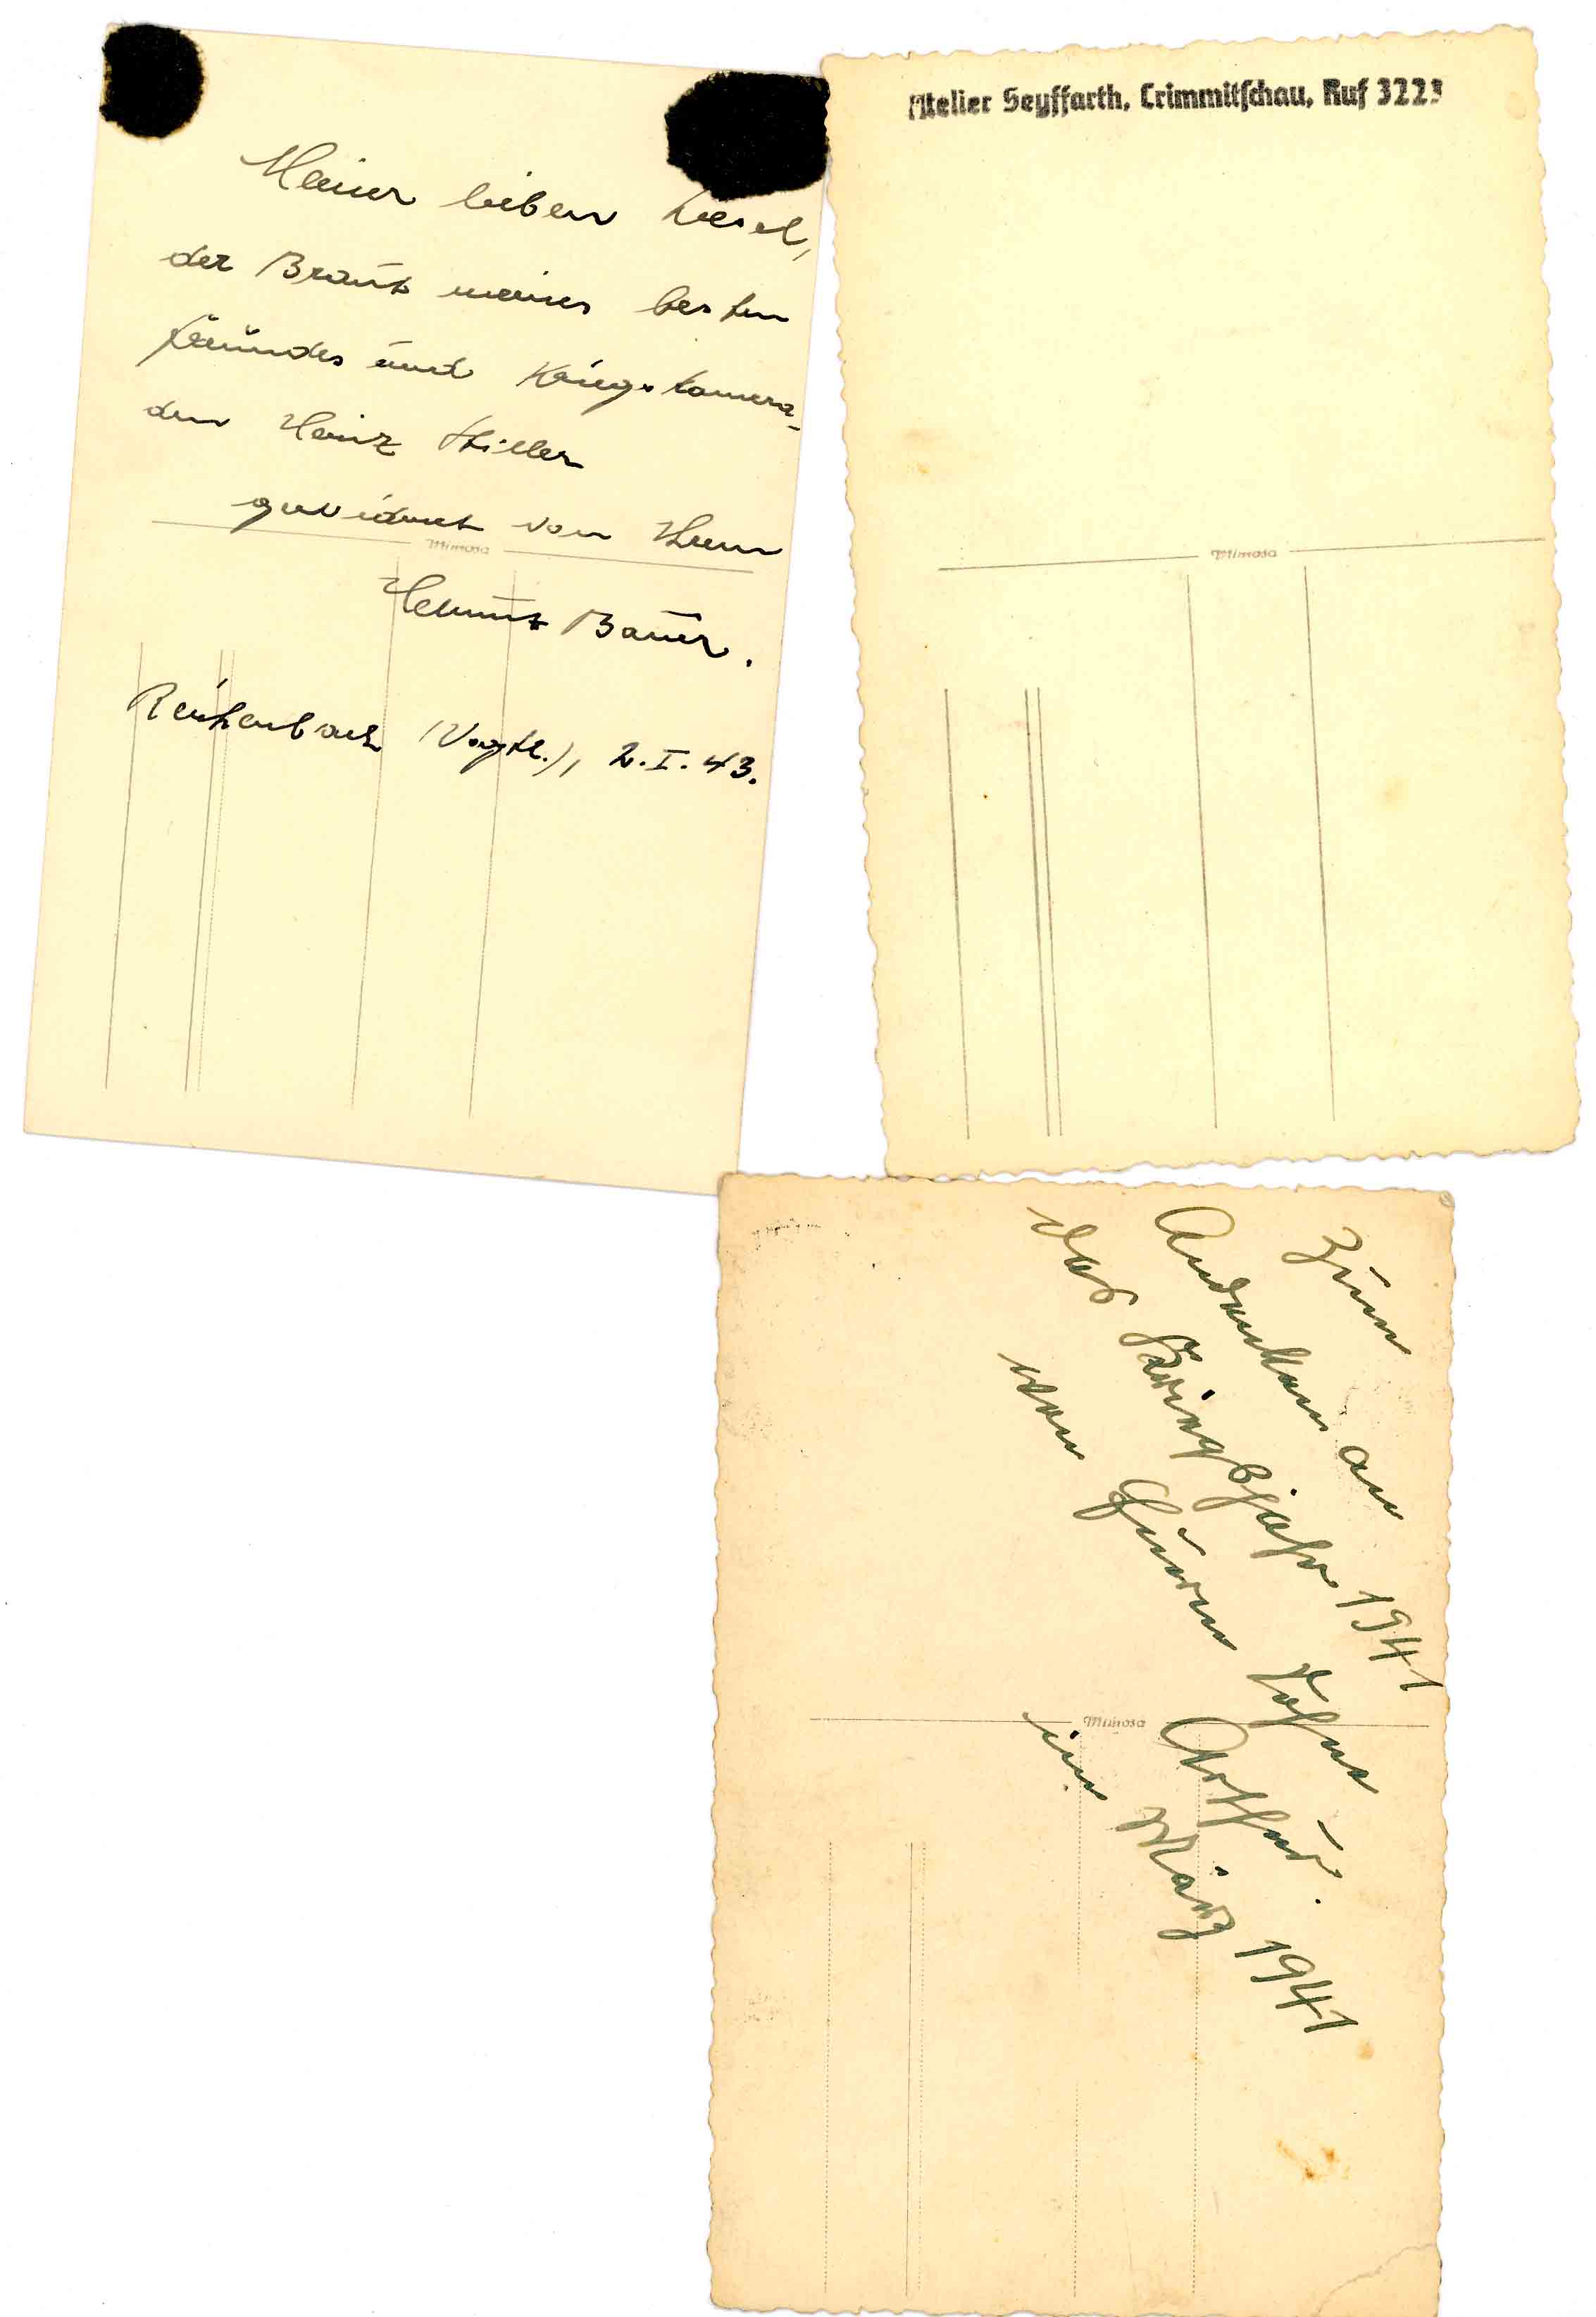 Meiner lieben Liesel,
der Braut meines besten
Freundes und Kriegskamera-
den Heinz Hiller
gewidmet von Ihrem
Mimosa
Helmut Bauer.
Reichenbach (Vogtl.), 2.I.43.
Atelier Seyffarth, Crimmitschau, Ruf 3223
Mimosa
Zum
Andenken an
das Kriegsjahr 1941
von Eurem Sohne
Mimosa
Arthur.
im März 1941